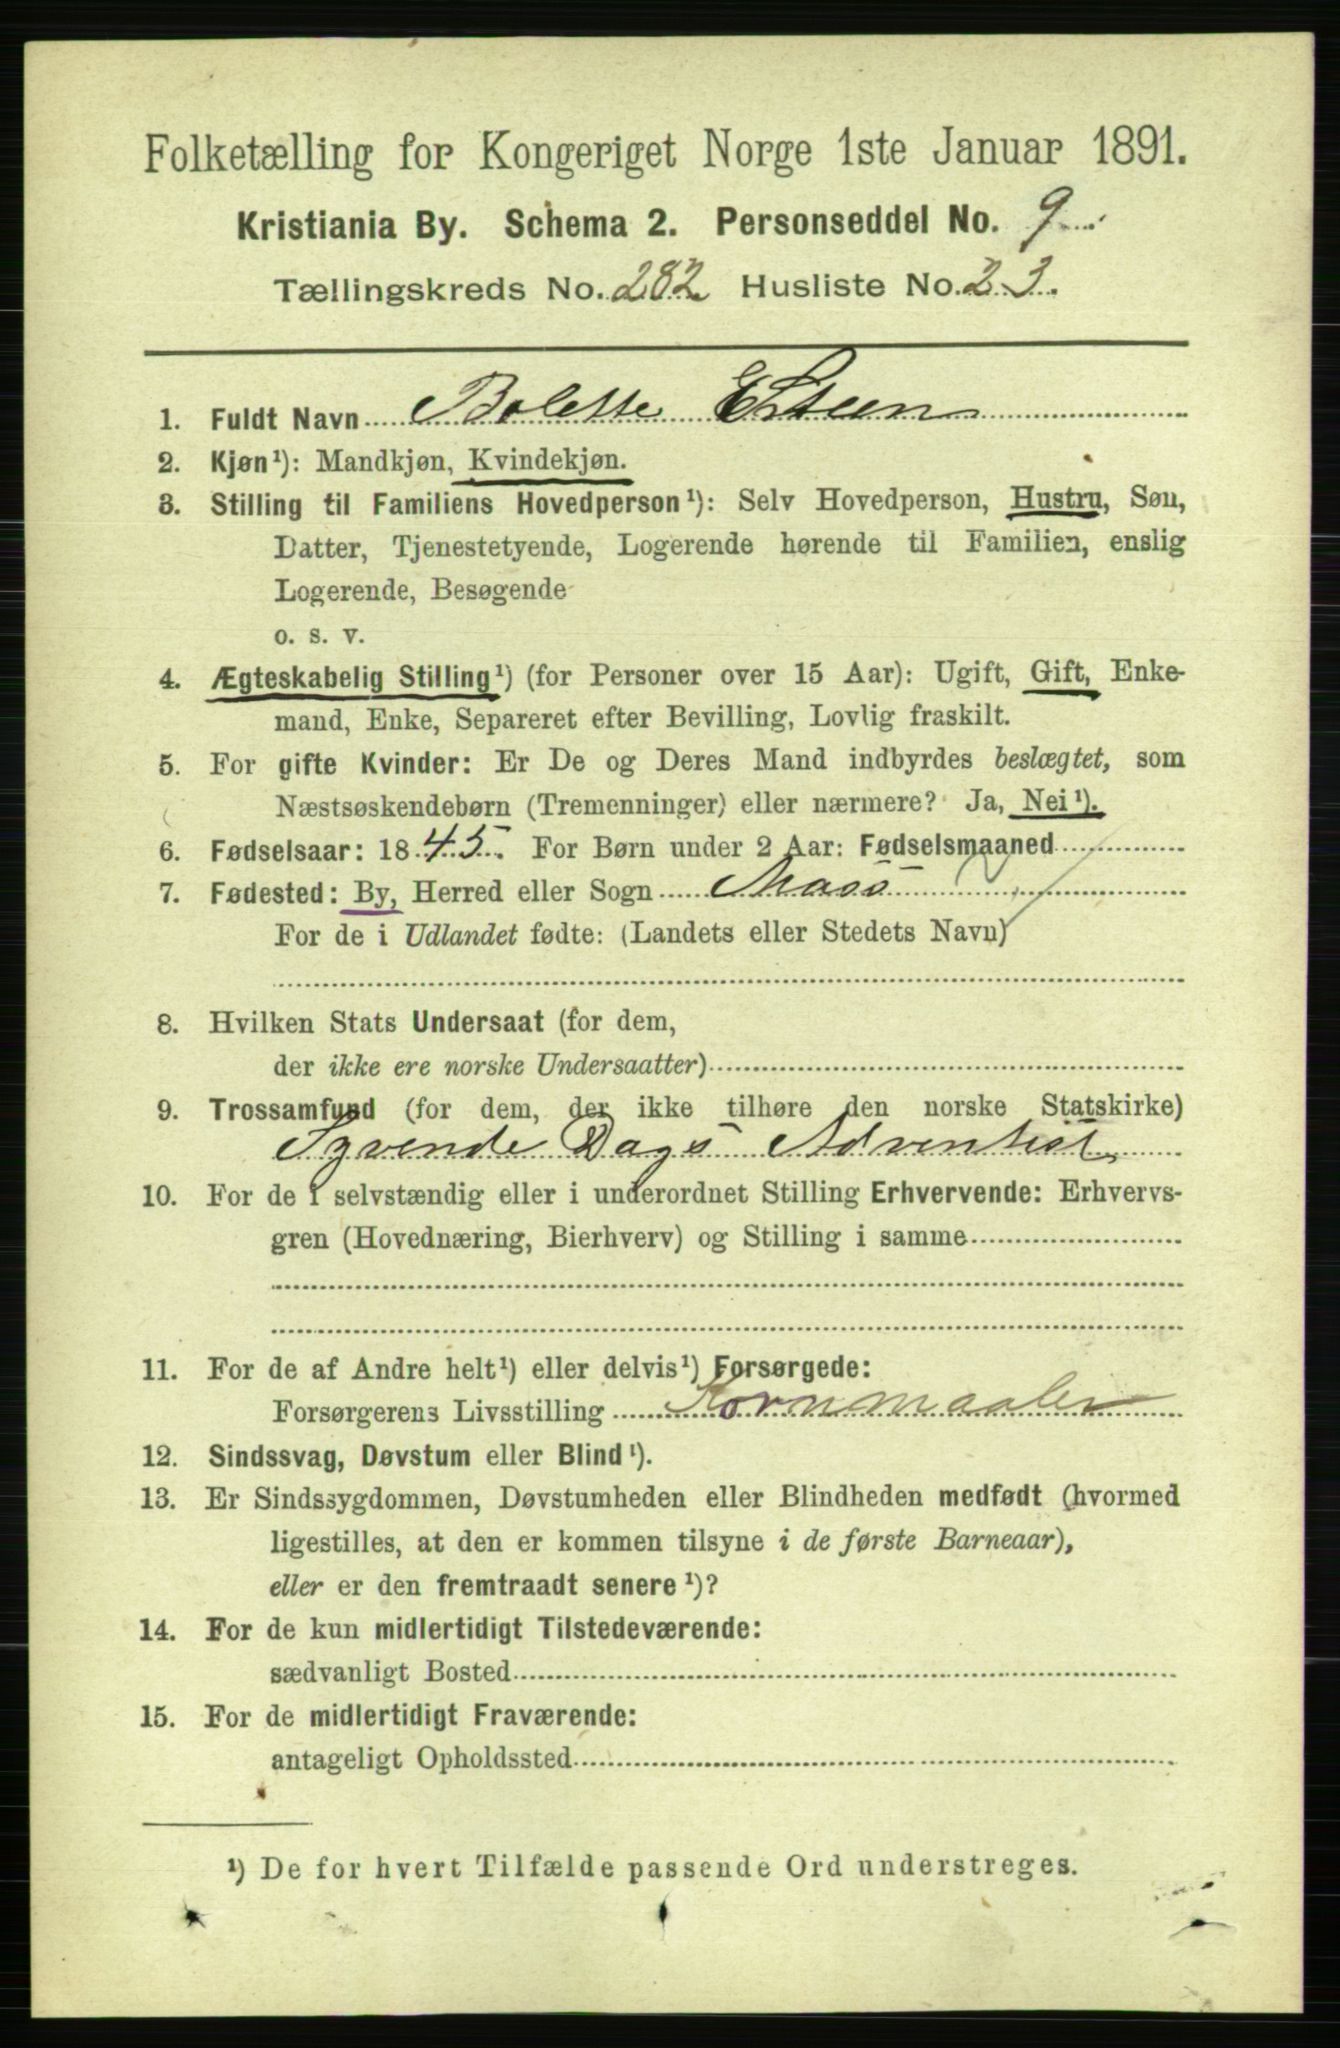 Folketælling for Kongeriget Norge 1ste Januar 1891.
Kristiania By. Schema 2. Personseddel No. 9
Tællingskreds No. 282 Husliste No. 23.
1. Fuldt Navn Bolette Esteen
2. Kjøn¹): Mandkjøn, Kvindekjøn.
3. Stilling til Familiens Hovedperson¹): Selv Hovedperson, Hustru, Søn,
Datter, Tjenestetyende, Logerende hørende til Familien, enslig
Logerende, Besøgende
o. s. v.
4. Ægteskabelig Stilling¹) (for Personer over 15 Aar): Ugift, Gift, Enke-
mand, Enke, Separeret efter Bevilling, Lovlig fraskilt.
5. For gifte Kvinder: Er De og Deres Mand indbyrdes beslægtet, som
Næstsøskendebørn (Tremenninger) eller nærmere? Ja, Nei¹).
6. Fødselsaar: 1845. For Børn under 2 Aar: Fødselsmaaned
7. Fødested: By, Herred eller Sogn Moss
For de i Udlandet fødte: (Landets eller Stedets Navn)
8. Hvilken Stats Undersaat (for dem,
der ikke ere norske Undersaatter)
9. Trossamfund (for dem, der ikke tilhøre den norske Statskirke)
Syvende Dags Adventist
10. For de i selvstændig eller i underordnet Stilling Erhvervende: Erhvervs-
gren (Hovednæring, Bierhverv) og Stilling i samme
11. For de af Andre helt¹) eller delvis¹) Forsørgede:
Forsørgerens Livsstilling Kornmaaler
12. Sindssvag, Døvstum eller Blind¹).
13. Er Sindssygdommen, Døvstumheden eller Blindheden medfødt (hvormed
ligestilles, at den er kommen tilsyne i de første Barneaar),
eller er den fremtraadt senere¹)?
14. For de kun midlertidigt Tilstedeværende:
sædvanligt Bosted
15. For de midlertidigt Fraværende:
antageligt Opholdssted
¹) De for hvert Tilfælde passende Ord understreges.